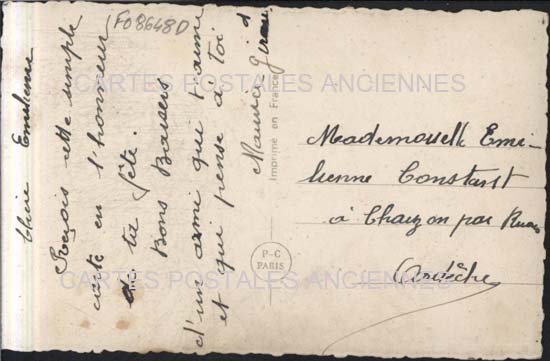 F08648D
Chère Emilienne
Reçois cette simple
carte en l'honneur
de ta fête.
Bons Baisers
d'un ami que t'aime
et qui pense à toi
Maurice
Imprimé en France
P-C
PARIS
Mademoiselle Emi-
lienne Constant
à par
Ardèche
CARTES POSTALES ANCIENNES
CARTES POSTALES ANCIENNES